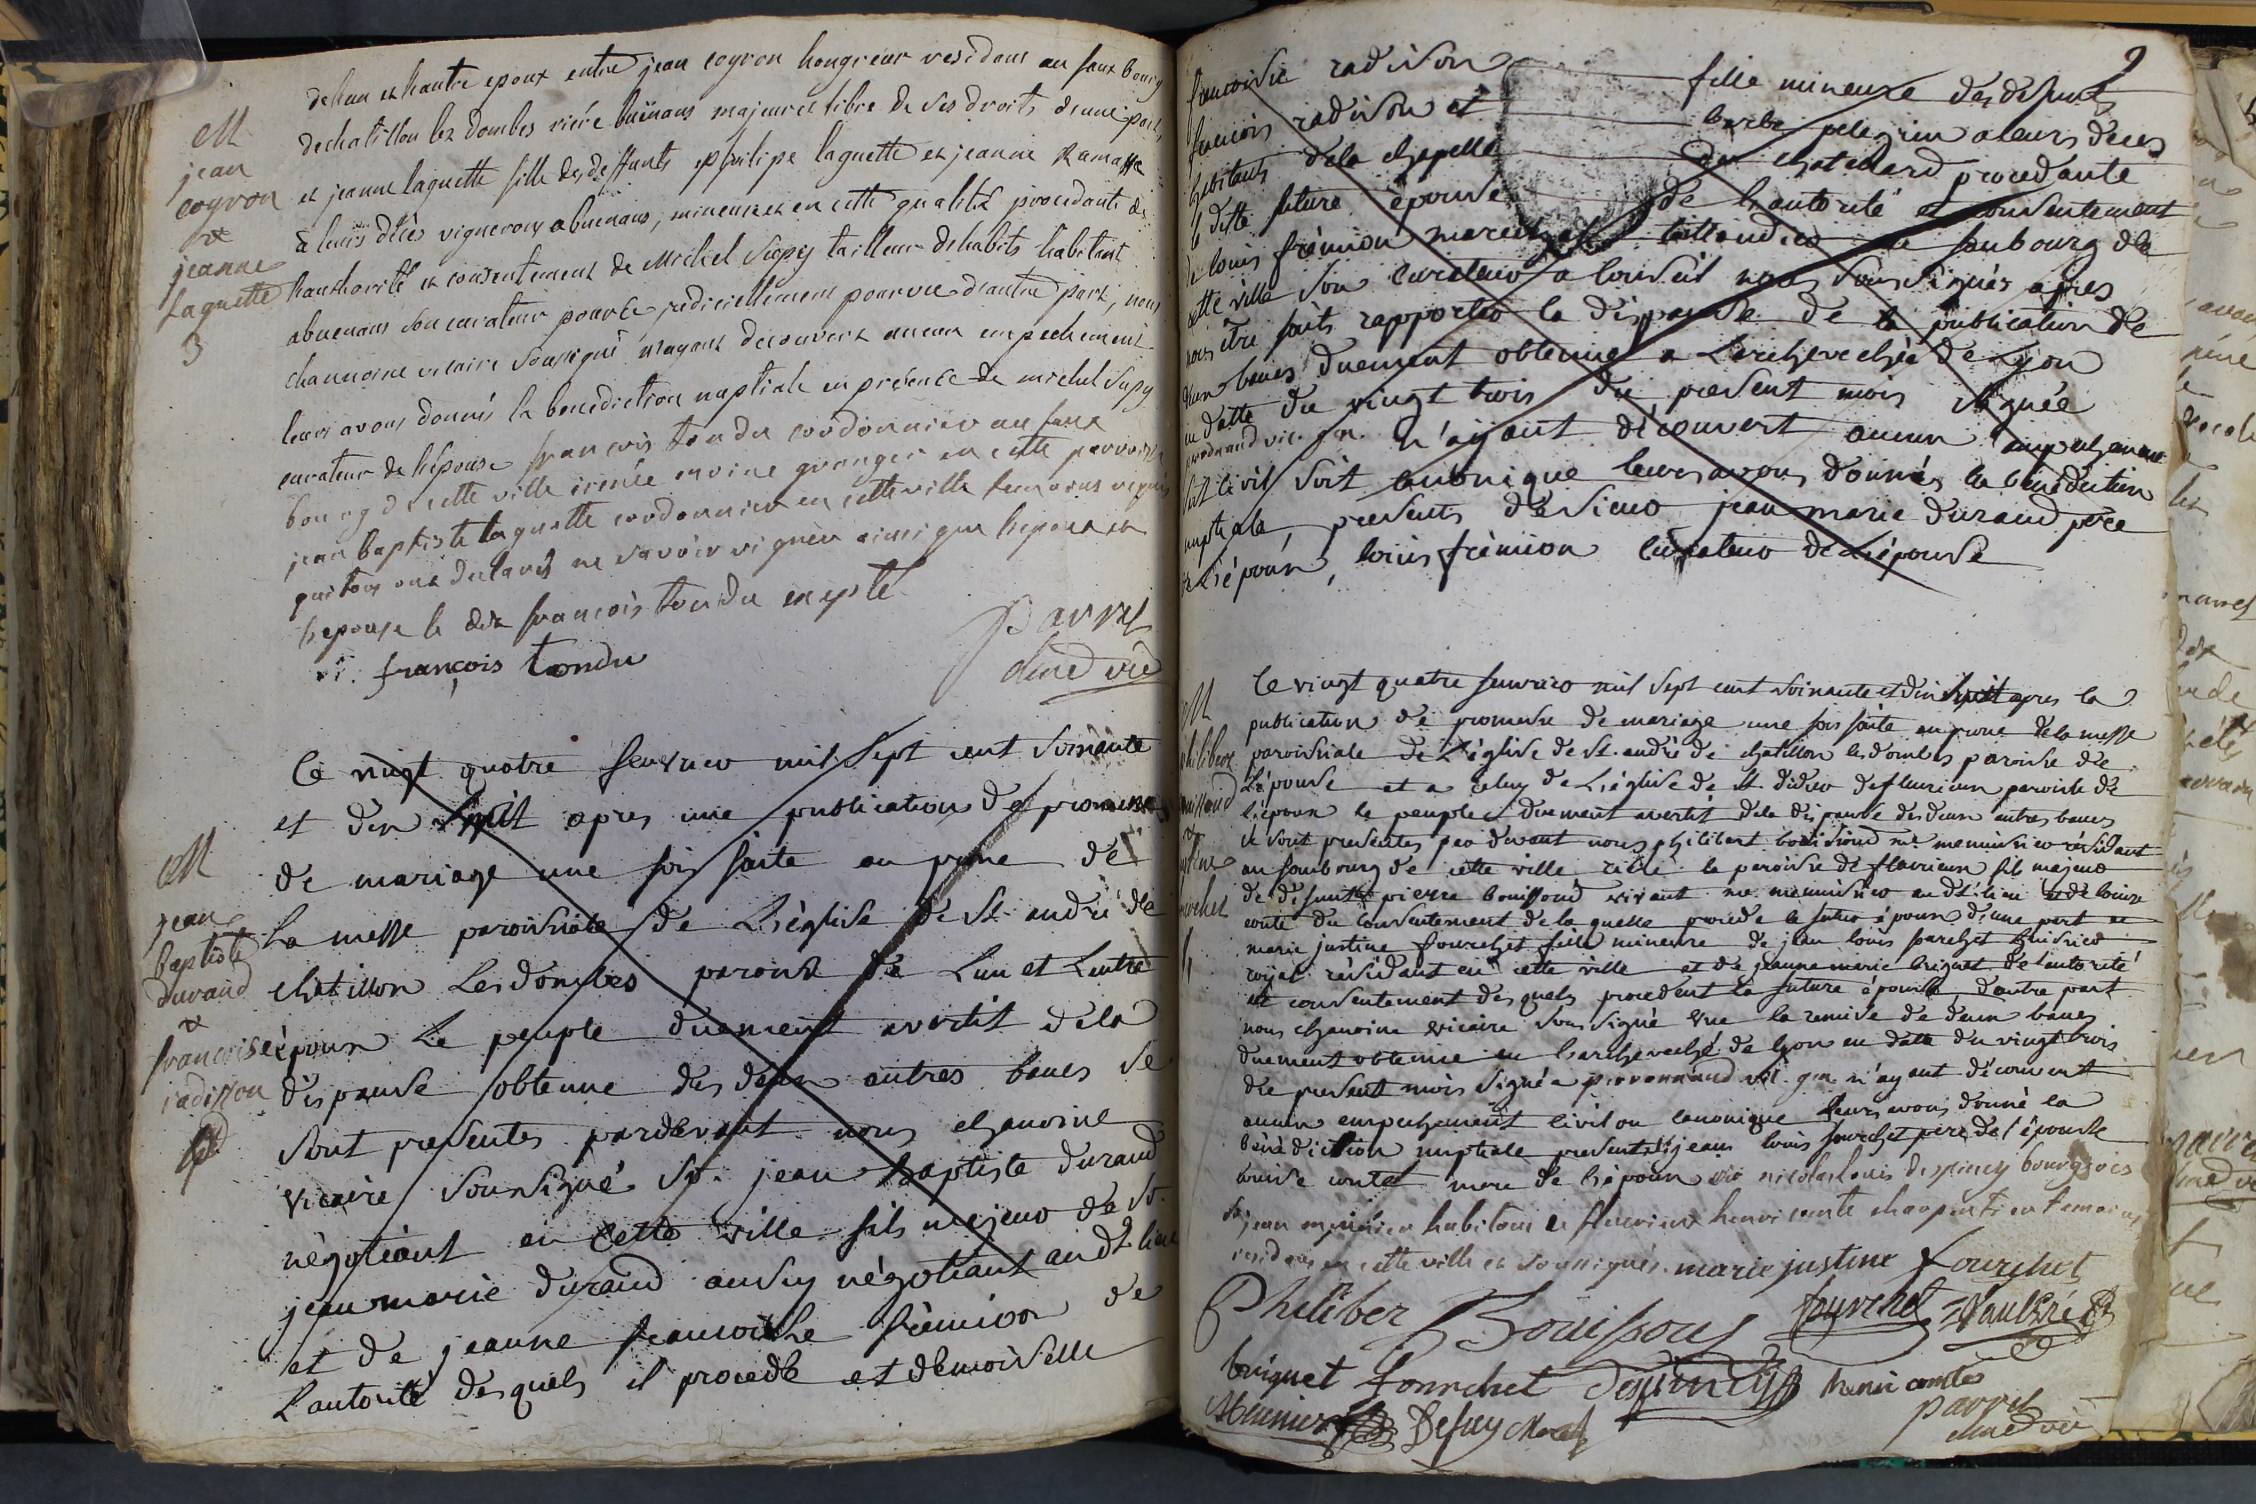 M
jean
coyron
et
jeanne
Laguette
3
de l'un et l'autre epoux entre jean coyron hongreur residant au faux bourg
de chatillon lez dombes rière buënans majeur et libre de ses droits d'une part,
et jeanne laguette fille des deffunts philipe laguette et jeanne Ramasse
à leurs décès vignerons a buenans, mineure et en cette qualité procedante de
l'authorité et consentement de Michel Supy tailleur d'habits habitant
a buenans son curateur pour ce judiciellement pourvu d'autre part, nous
chanoine vicaire soussigné n'ayant decouvert aucun empechement
leurs avons donnés la benediction nuptiale en presence de michel Supy
curateur de l'épouse françois tondu cordonnier au faux
bourg de cette ville irenée moine granger en cette parroisse
jean baptiste laguette cordonnier en cette ville temoins requis
qui tous ont declarés ne savoir signer ainsi que l'epoux et
l'epouse le dit françois tondu excepté
françois tondu
Parrel
chne vic
M
jean
baptiste
durand
et
francoise
radisson
Le vingt quatre feuvrier mil sept cent soixante
et dix huit apres une publication de promesses
de mariage une fois faite au prone de
La messe paroissiale de L'église de St. andré de
chatillon Les dombes paroisse de L'un et L'autre
époux Le peuple duement avertit de la
dispanse obtenue des deux autres bancs se
sont presentés pardevant nous chanoine
vicaire soussigné Sr. jean baptiste durand
négotiant en cette ville fils majeur de Sr.
jean marie durand aussy négotiant audt. lieu
et de jeanne francoise frémion de
L'autorité desquels il procede et demoiselle
9
francoise radison fille mineure des defunts
francois radison et barbe pelegrin a leurs deces
habitants de la chapelle du chatelard procedante
la ditte future épouse de l'autorité et consentement
de louis frémion marechal taillandier au faubourg de
cette ville son curateur a conseil nous soussignés apres
nous être faits rapporter la dispanse de la publication de
deux bancs duement obtenue a L'archeveché de Lyon
en datte du vingt trois du present mois signée
prodonnaud vic. gn. n'ayant découvert aucun empechement
soit civil soit canonique leurs avons donnés la bénédiction
nuptiale, presents désieur jean marie durand père
de L'époux, louis frémion curateur de L'épouse
M
philibert
et
fourchet
Le vingt quatre feuvrier mil sept cent soixante et dix huit apres la
publication de promesse de mariage une fois faite au prone de la messe
paroissiale de L'église de St. andré de chatillon les dombes paroisse de
L'épouse et a celuy de L'église de St. didier de fleurieux paroisse de
l'époux le peuple duement avertit de la dispanse des deux autres bancs
se sont presentés par devant nous philibert bouissoud me. menuisier résidant
au faubourg de cette ville rière la paroisse de fleurieux fils majeur
de defunt pierre bouissoud vivant me. menuisier audt. lieu et de louise
conte du consentement de laquelle procede le futur époux d'une part et
marie justine fourchet fille mineure de jean louis fourchet huissier
royal résidant en cette ville et de jeanne marie briguet de l'autorité
et consentement desquels procedent la future épouse, d'autre part
nous chanoine vicaire soussigné vue la remise de deux bancs
duement obtenue en L'archeveché de lyon en datte du vingt trois
du present mois signée prodonnaud vic. gn. n'ayant découvert
aucun empechement civil ou canonique leurs avons donné la
bénédiction nuptiale presents jean louis fourchet père de l'épouse
louise contet mere de l'époux nicolas louis despiney bourgeois
jean munier habitant a fleurieux henri comte charpentier temoins
residans en cette ville et soussignés. marie justine fourchet
Philiber Bouissoud fourchet
briguet fourchet despiney henri comte
Munier Defay
parrel
chne vic